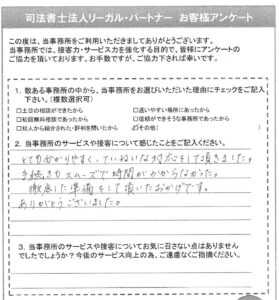 司法書士法人リーガル・パートナー　お客様アンケート
この度は、当事務所をご利用いただきましてありがとうございます。
当事務所では、接客力・サービス力を強化する目的で、皆様にアンケートの
ご協力を頂いております。お手数ですが、ご協力下されば幸いです。
1. 数ある事務所の中から、当事務所をお選びいただいた理由にチェックをご記入
下さい。(複数選択可)
□土日の相談ができたから　□通いやすい場所にあったから
□初回無料相談であったから　□信頼ができそうな事務所であったから
□知人から紹介された・評判を聞いたから　☑その他(　)
2. 当事務所のサービスや接客について感じたことをご記入ください。
とても分かりやすく、ていねいな対応をして頂きました。
手続きもスムーズで時間がかからなかった。
徹底した準備をして頂いたおかげです。
ありがとうございました。
3. 当事務所のサービスや接客についてお気に召さない点はありません
でしたでしょうか？今後のサービス向上の為、ご遠慮なくご指摘ください。